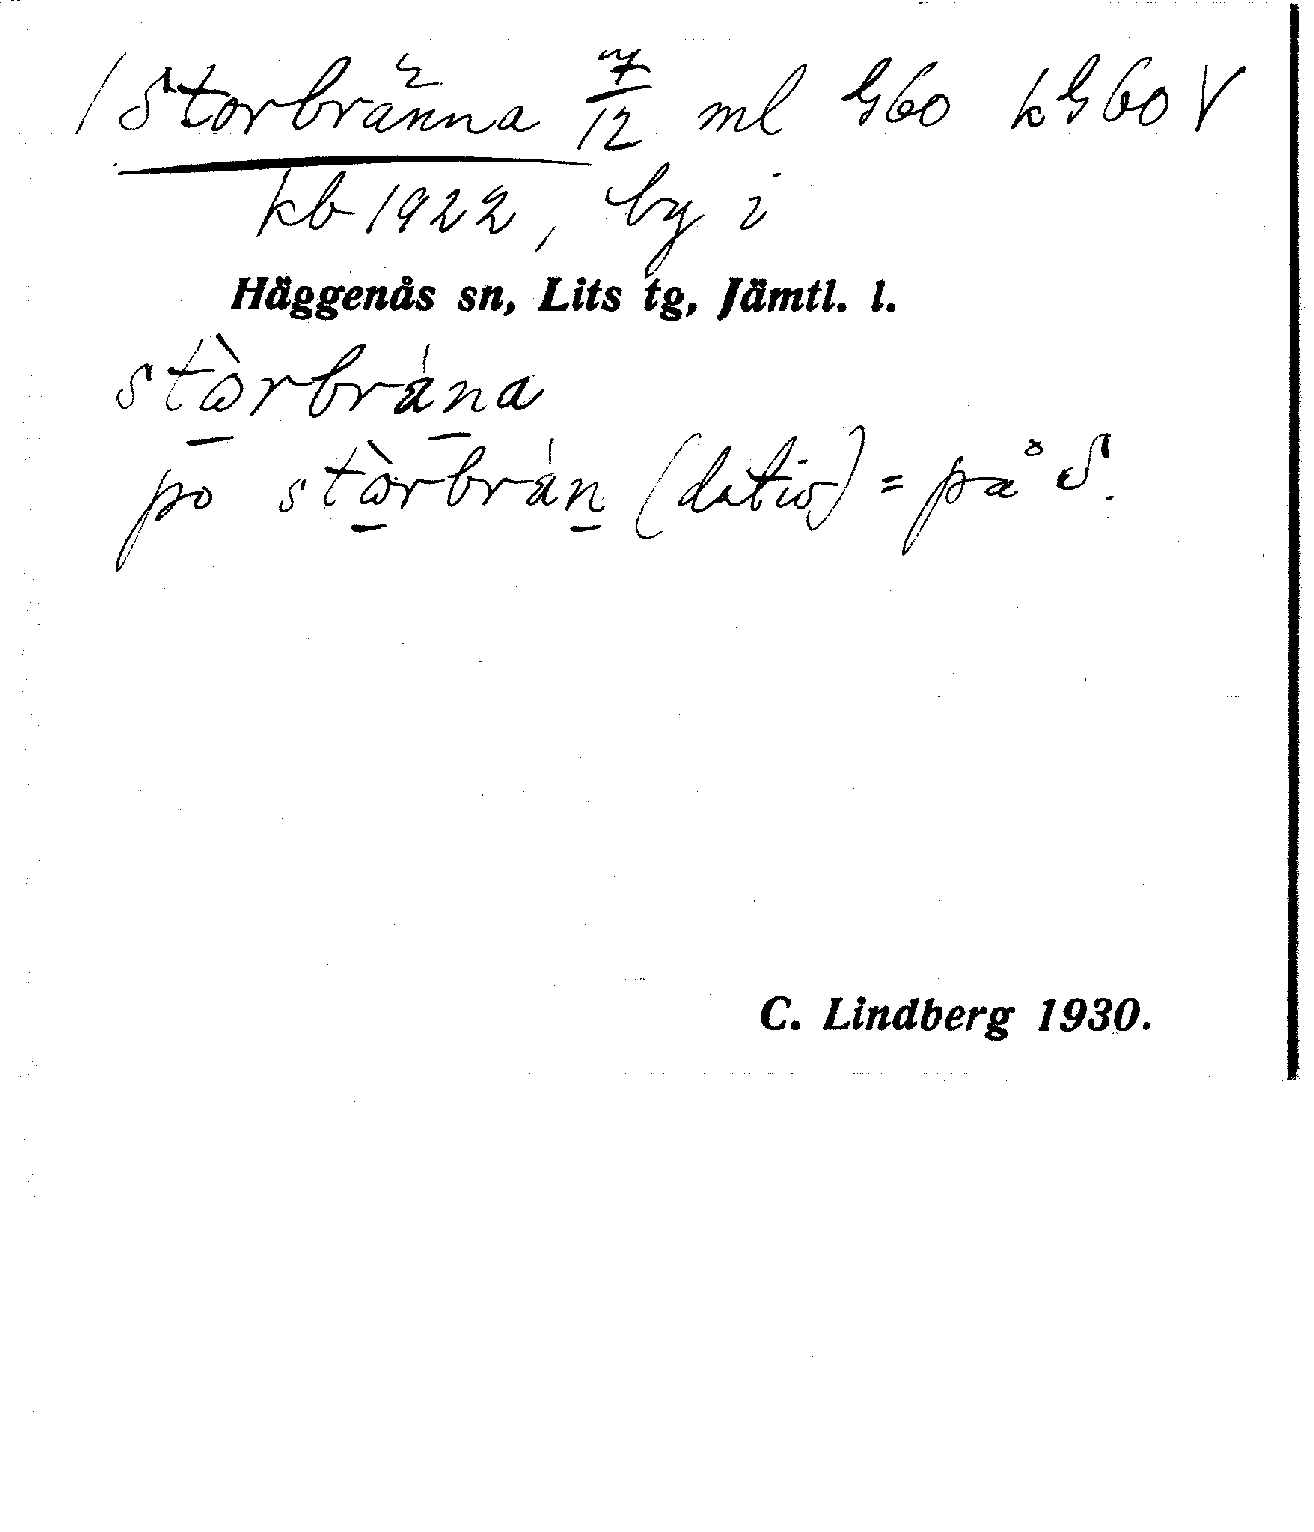 / Storbränna 7/12 ml G60 kG60V
kb 1922, by i
Häggenås sn, Lits tg, Jämtl. l.
stòrbrána
po stòrbrán (dativ) = på S.
C. Lindberg 1930.